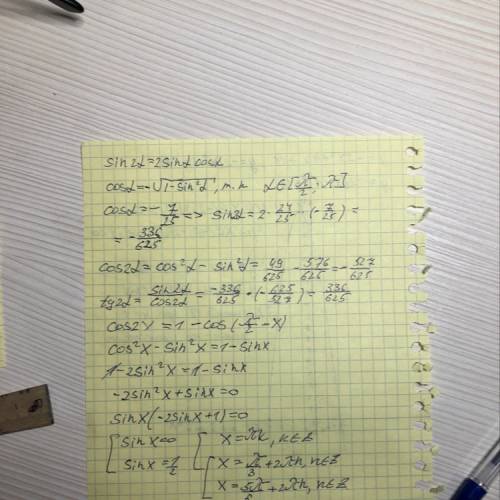 sin2α=2sinα cosα
cosα=-√(1-sin²α), т.к α∈[π/2; π]
cosα=-7/25 => sin2α=2·24/25·(-7/25)=
=-336/625
cos2α=cos²α-sin²α=49/625-576/625=-527/625
tg2α=sin2α/cos2α=-336/625·(-625/527)=336/625
cos2x=1-cos(π/2-x)
cos²x-sin²x=1-sinx
1-2sin²x=1-sinx
-2sin²x+sinx=0
sinx(-2sinx+1)=0
[sinx=0 [x=πk, k∈Z
[sinx=1/2 [x=π/3+2πn, n∈Z
[x=5π/6+2πn, n∈Z